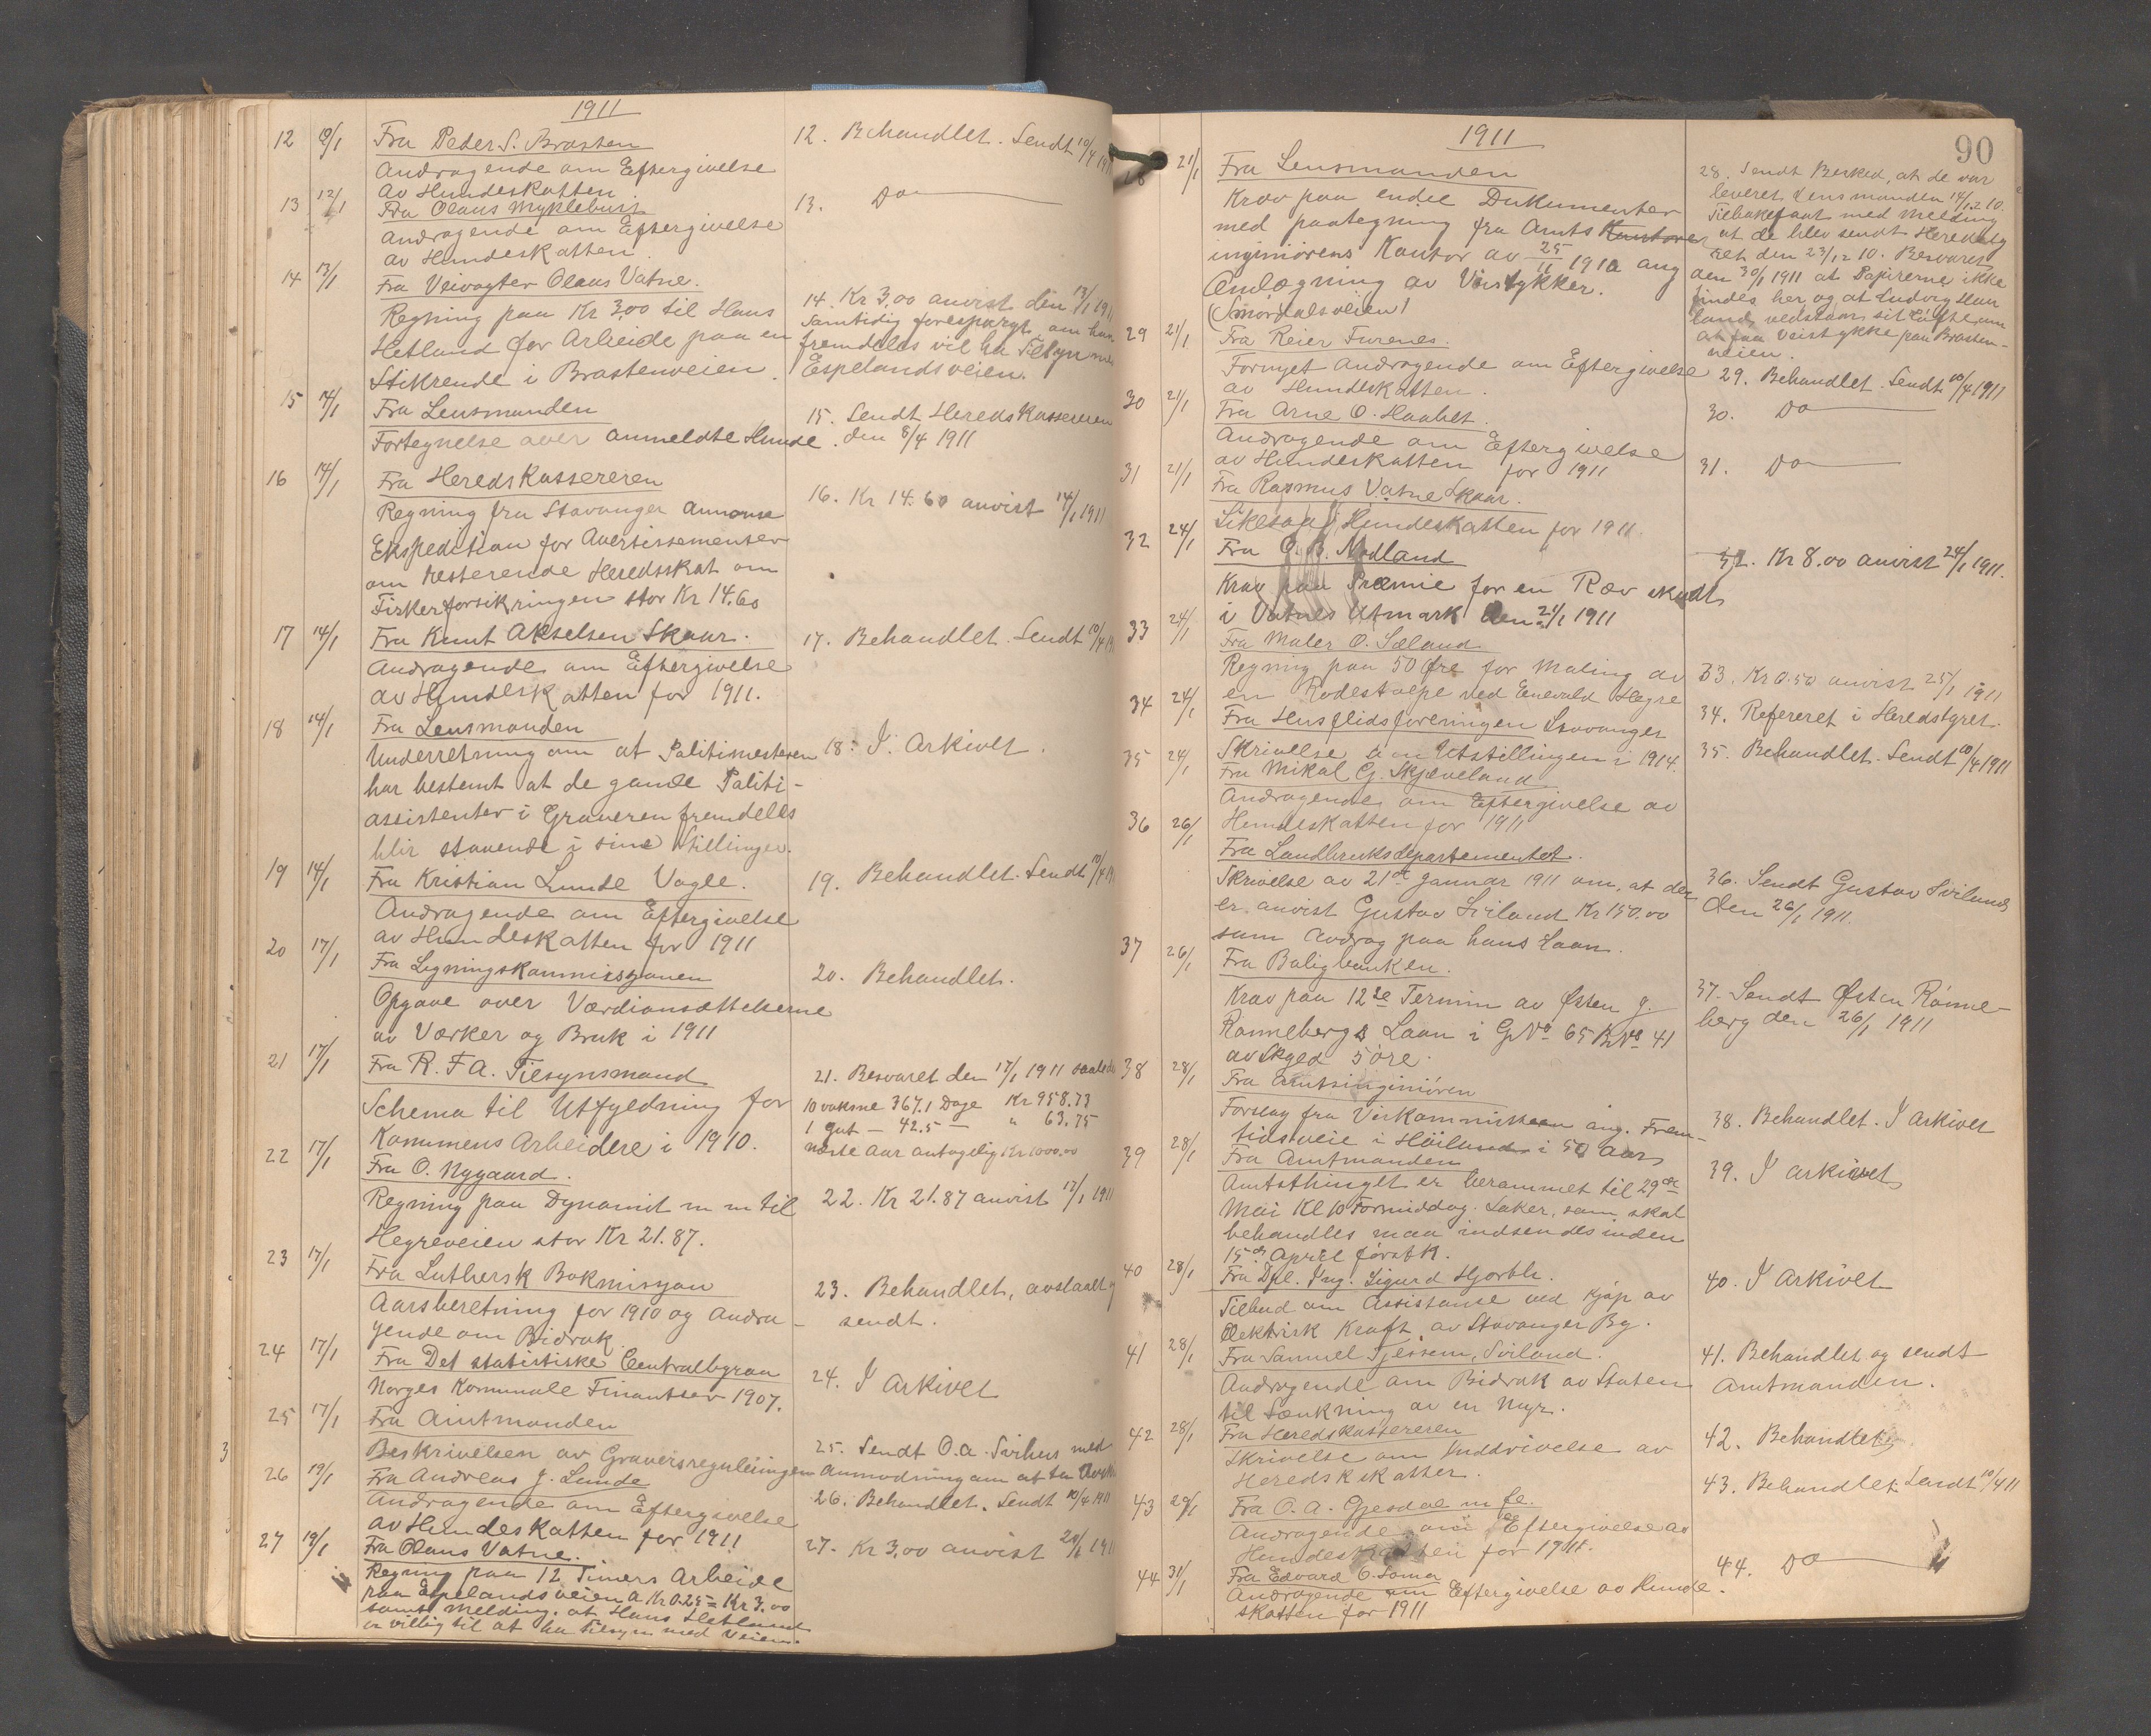 1911
12 9/1 Fra Peder S. Brasten
Andragende om Eftergivelse
av Hundeskatten.
12. Behandlet. Sendt 10/4 1911
13 12/1 Fra Olaus Myklebust
Andragende om Eftergivelse
av Hundeskatten.
13. Do
14 13/1 Fra Veivogter Olaus Vatne.
Regning paa Kr 3,00 til Hans
Hetland for Arbeide paa en
Stikrende i Brastenveien.
14. Kr 3,00 anvist den 13/1 1911
Samtidig forespurgt, om han
fremdeles vil ha Tilsyn med
Espelandsveien.
15 14/1 Fra Lensmanden
Fortegnelse over anmeldte Hunde.
15. Sendt Heredskassereren
den 8/4 1911
16 14/1 Fra Heredskassereren
Regning fra Stavanger Annonse
Ekspedition for Avertissementer
om resterende Heredsskat om
Fiskerforsikringen stor Kr 14.60
16. Kr 14.60 anvist 14/1 1911
17 14/1 Fra Knut Akselsen Skaar.
Andragende om Eftergivelse
av Hundeskatten for 1911.
17. Behandlet. Sendt 10/4 19
18 14/1 Fra Lensmanden
Underretning om at Politimesteren
har bestemt at de gamle Politi-
assistenter i Graveren fremdeles
blir staaende i sine Stillinger.
18. I Arkivet.
19 14/1 Fra Kristian Lunde Vagle.
Andragende om Eftergivelse
av Hundeskatten for 1911
19. Behandlet. Sendt 10/4 19
20 17/1 Fra Ligningskommissjonen
Opgave over Værdiansættelserne
av Værker og Bruk i 1911
20. Behandlet.
21 17/1 Fra R. F. A. Tilsynsmand
Schema til Utfyldning for
Kommunens Arbeidere i 1910.
21. Besvaret den 17/1 1911 saaledes
10 voksne 367.1 Dage Kr 958.73
1 gut — 42.5 — " 63.75
næste aar antagelig Kr 1000.00
22 17/1 Fra O. Nygaard.
Regning paa Dynamit m m til
Hegreveien stor Kr 21.87.
22. Kr 21.87 anvist 17/1 1911
23 17/1 Fra Luthersk Bokmisjon
Aarsberetning for 1910 og Andra-
gende om Bidrak.
23. Behandlet, avslaat og
sendt.
24 17/1 Fra Det statistiske Centralbyraa
Norges Komunale Finantser 1907.
24. I Arkivet
25 17/1 Fra Amtmanden
Beskrivelsen av Graversreguleringen
25. Sendt O. A. Svihus med
Anmodning om at ta
26 19/1 Fra Andreas J. Lunde
Andragende om Eftergivelse
av Hundeskatten for 1911
26. Behandlet. Sendt 10/4 1911
27 19/1 Fra Olaus Vatne.
Regning paa 12 Timers Arbeide
paa Espelandsveien a Kr 0.25 = Kr 3.00
samt Melding. at Hans Hetland
er villig til at ha Tilsyn med Veien.
27. Kr 3,00 anvist 20/1 191
3
90
1911
21/1 Fra Lensmanden
Krav paa endel Dokumenter
med paategning fra Amts Kontore
ingeniørens Kontor av 25/11 1910 ang
Omlægning av Veistykker.
(Smørdalsveien)
28. Sendt Besked, at de var
leveret Lensmanden 14/12 10.
Tilbakefaat med Melding
at de blev sendt Heredsty
ret den 23/12 10. Besvaret
den 30/1 1911 at Papirerne ikke
findes her og at Ludvig Hau
land vedstaar sit Løfte om
at faa Veistykke paa Brasten-
veien.
29 21/1 Fra Reier Furenes.
Fornyet Andragende om Eftergivelse
av Hundeskatten.
29. Behandlet. Sendt 10/4 1911
30 21/1 Fra Arne O. Haabet.
Andragende om Eftergivelse
av Hundeskatten for 1911
30. Do
31 21/1 Fra Rasmus Vatne Skaar.
Likesaa Hundeskatten for 1911.
31. Do
32 24/1 Fra O. B. Nodland
Krav paa Præmie for en Ræv skudt
i Vatnes Utmark den 21/1 1911
32. Kr 8.00 anvist 24/1 1911.
33 24/1 Fra Maler O. Sæland
Regning paa 50 Øre for Maling av
en Rodestolpe ved Enevald Hegre
33. Kr 0.50 anvist 25/1 1911
34 24/1 Fra Husflidsforeningen Stavanger
Skrivelse om Utstillingen i 1914.
34. Refereret i Heredstyret.
35 24/1 Fra Mikal G. Skjæveland
Andragende om Eftergivelse av
Hundeskatten for 1911
35. Behandlet. Sendt 10/4 1911
36 26/1 Fra Landbruksdepartementet.
Skrivelse av 21de Januar 1911 om, at der
er anvist Gustav Sviland Kr 150.00
som Avdrag paa hans Laan.
36. Sendt Gustav Sviland
den 26/1 1911.
37 26/1 Fra Boligbanken.
Krav paa 12te Termin av Østen J.
Rønnebergs Laan i G.No 65 B.No 41
av Skged 5 øre.
37. Sendt Østen Rønne-
berg den 26/1 1911
38 28/1 Fra Amtsingeniøren
Forslag fra Veikommissionen ang. Frem-
tidsveie i Høiland i 50 Aar
38. Behandlet. I Arkivet
39 28/1 Fra Amtmanden
Amtsthinget er berammet til 29de
Mai Kl 10 Formiddag. Saker, som skal
behandles maa indsendes inden
15de April førstk.
39. I arkivet
40 28/1 Fra Dpl. Ing. Sigurd Hjorth.
Tilbud om Assistanse ved Kjøp av
Elektrisk Kraft av Stavanger By.
40. I Arkivet
41 28/1 Fra Samuel Tjessem, Sviland.
Andragende om Bidrak av Staten
til Sænkning av en Myr.
41. Behandlet og sendt
Amtmanden.
42 28/1 Fra Heredskassereren
Skrivelse om Inddrivelse av
Heredsskatter.
42. Behandlet
43 29/1 Fra O. A. Gjesdal m fl.
Andragende om Eftergivelse av
Hundeskatten for 1911.
43. Behandlet. Sendt 10/4 11
44 31/1 Fra Edvard O. Soma
Andragende om Eftergivelse av Hunde-
skatten for 1911
44. Do